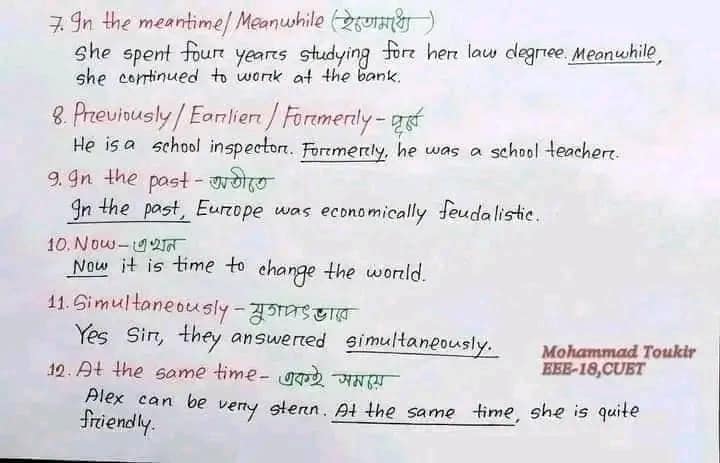 7. In the meantime/ Meanwhile (ইতোমধ্যে)
She spent four years studying for her law degree. Meanwhile,
she continued to work at the bank.
8. Previously/ Earlier / Formerly - পূর্বে
He is a school inspector. Formerly, he was a school teacher.
9. In the past - অতীতে
In the past, Europe was economically feudalistic.
10. Now - এখন
Now it is time to change the world.
11. Simultaneously - যুগপৎভাবে
Yes Sir, they answered simultaneously.
12. At the same time - একই সময়ে
Alex can be very stern. At the same time, she is quite
friendly.
Mohammad Toukir
EEE-18,CUET